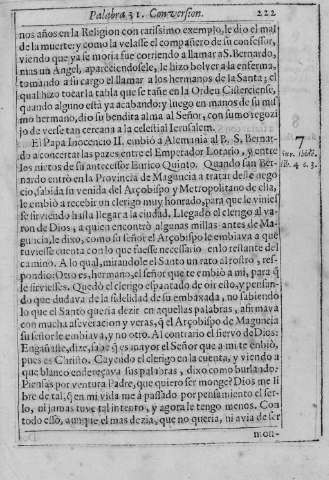 Palabra 31. Conversion. 222
nos años en la Religion con rarissimo exemplo, le dio el mal
de la muerte: y como la velasse el compañero de su confessor,
viendo que ya se moria fue corriendo a llamar a S. Bernardo,
mas un Angel, apareciendosele, le hizo bolver a la enferma,
tomando a su cargo el llamar a los hermanos de la Santa; el
qual hizo tocar la tabla que se tañe en la Orden Cisterciense,
quando alguno està ya acabando: y luego en manos de su mis
mo hermano, dio su bendita alma al Señor, con sumo regozi
jo de verse tan cercana a la celestial Ierusalem.
El Papa Inocencio II. embiò a Alemania al B. S. Bernar-
do a concertar las pazes entre el Emperador Lotario, y entre
los nietos de su antecessor Enrico Quinto. Quando san Ber-
nardo entrò en la Provincia de Maguncia a tratar deste nego
cio, sabida su venida del Arçobispo y Metropolitano de ella,
le embiò a recebir un clerigo muy honrado, para que le viniese
se sirviendo hasta llegar a la ciudad. Llegado el clerigo al va-
ron de Dios, a quien encontrò algunas millas antes de Ma-
guncia, le dixo, como su señor el Arçobispo le embiava a que
tuviesse cuenta con lo que fuesse necessario en lo restante del
camino. A lo qual, mirandole el Santo un rato al rostro, res-
pondio: Otro es, hermano, el señor que te embiò a mi, para q̃
le sirviesses. Quedò el clerigo espantado de oir esto, y pensan-
do que dudava de la fidelidad de su embaxada, no sabiendo
lo que el Santo queria dezir en aquellas palabras, afirmava
con mucha asseveracion y veras, q̃ el Arçobispo de Maguncia
su señor le embiava, y no otro. Al contrario el siervo de Dios:
Engañaste, dize, sabe q̃ es mayor el Señor que a mi te embiò,
pues es Christo. Cayendo el clerigo en la cuenta, y viendo a
que blanco endereçava sus palabras, dixo como burlando:
Piensas por ventura Padre, que quiero ser monge? Dios me li
bre de tal, q̃ en mi vida me a passado por pensamiento el ser-
lo, ni jamas tuve tal intento, y agora le tengo menos. Con
todo esso, aunque el mas dezia, que no queria, ni avia de ser
mon-
7
lib. 4. c. 3.